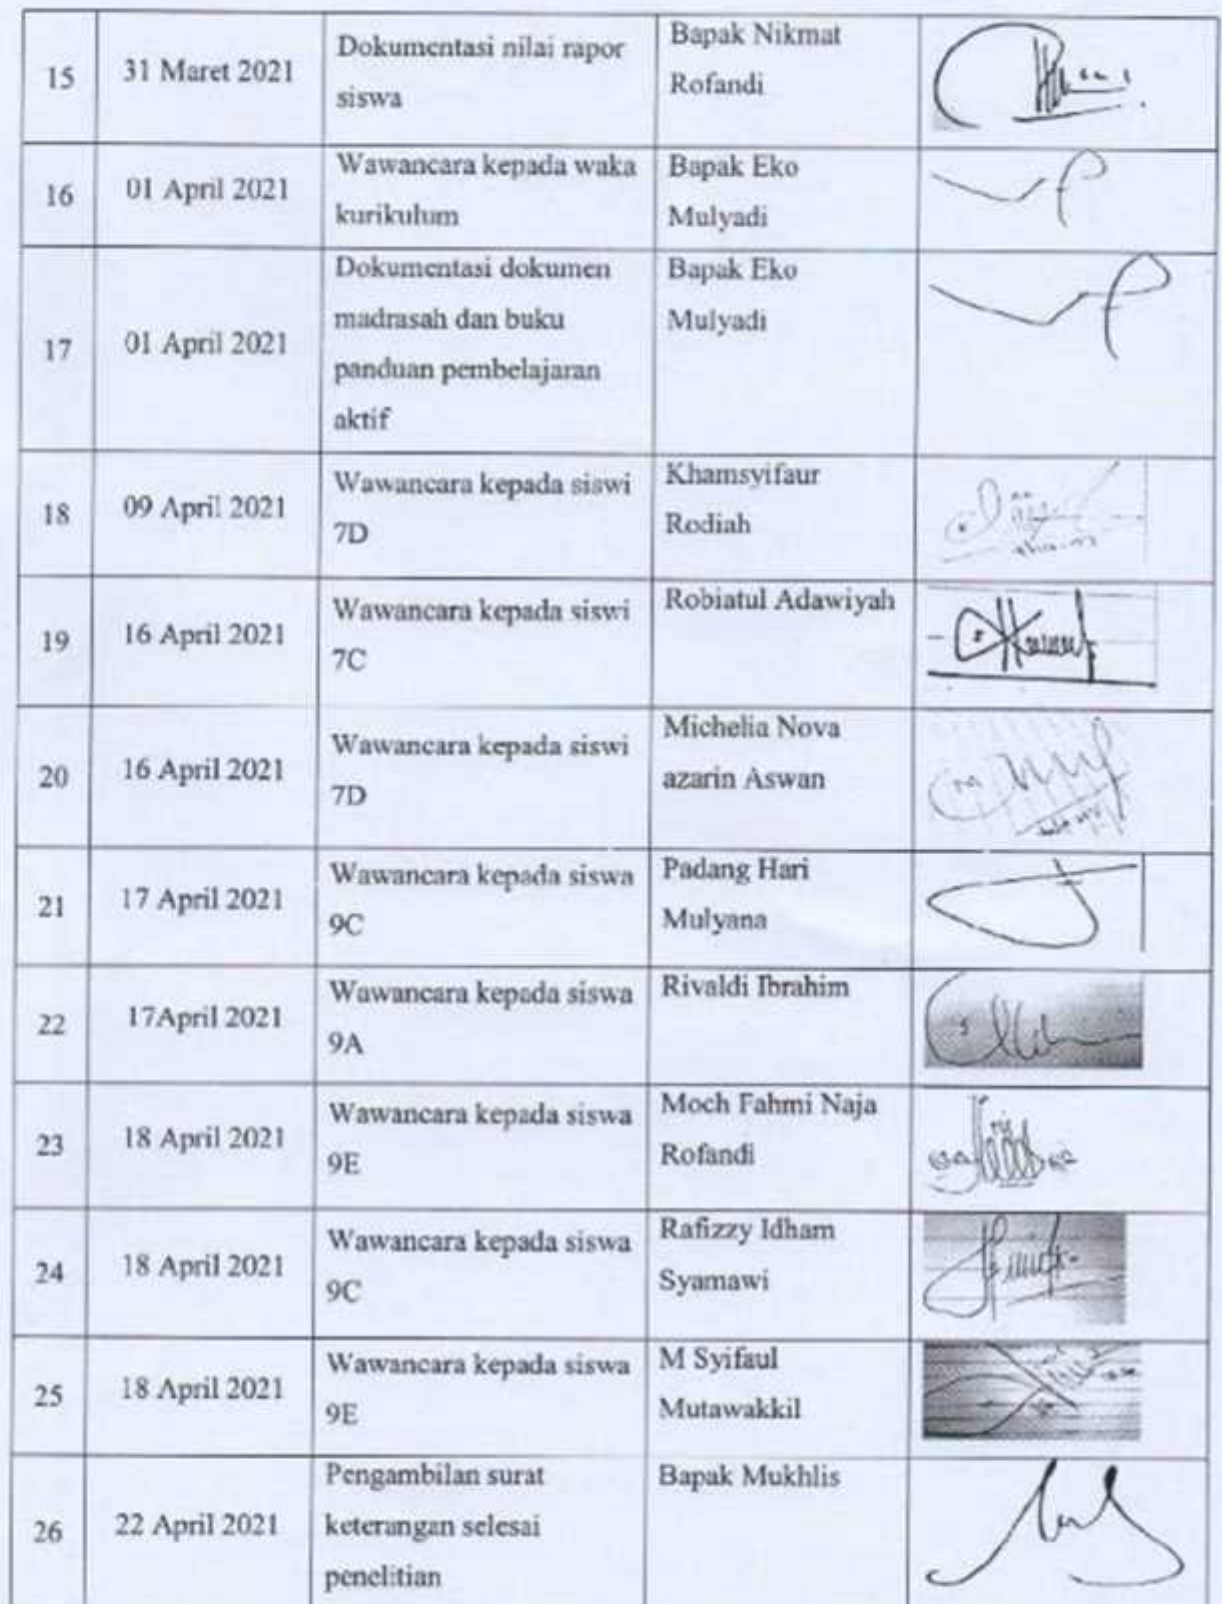 15
31 Maret 2021
Dokumentasi nilai rapor
siswa
Bapak Nikmat
Rofandi
16
01 April 2021
Wawancara kepada waka
kurikulum
Bapak Eko
Mulyadi
17
01 April 2021
Dokumentasi dokumen
madrasah dan buku
panduan pembelajaran
aktif
Bapak Eko
Mulyadi
18
09 April 2021
Wawancara kepada siswi
7D
Khamsyifaur
Rodiah
19
16 April 2021
Wawancara kepada siswi
7C
Robiatul Adawiyah
20
16 April 2021
Wawancara kepada siswi
7D
Michelia Nova
azarin Aswan
21
17 April 2021
Wawancara kepada siswa
9C
Padang Hari
Mulyana
22
17April 2021
Wawancara kepada siswa
9A
Rivaldi Ibrahim
23
18 April 2021
Wawancara kepada siswa
9E
Moch Fahmi Naja
Rofandi
24
18 April 2021
Wawancara kepada siswa
9C
Rafizzy Idham
Syamawi
25
18 April 2021
Wawancara kepada siswa
9E
M Syifaul
Mutawakkil
26
22 April 2021
Pengambilan surat
keterangan selesai
penelitian
Bapak Mukhlis